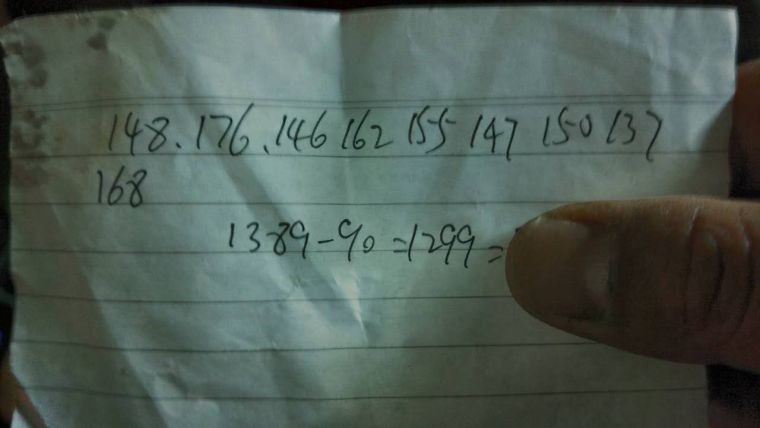 148.176.146 162 155 147 150 137
168
1389-90=1299=